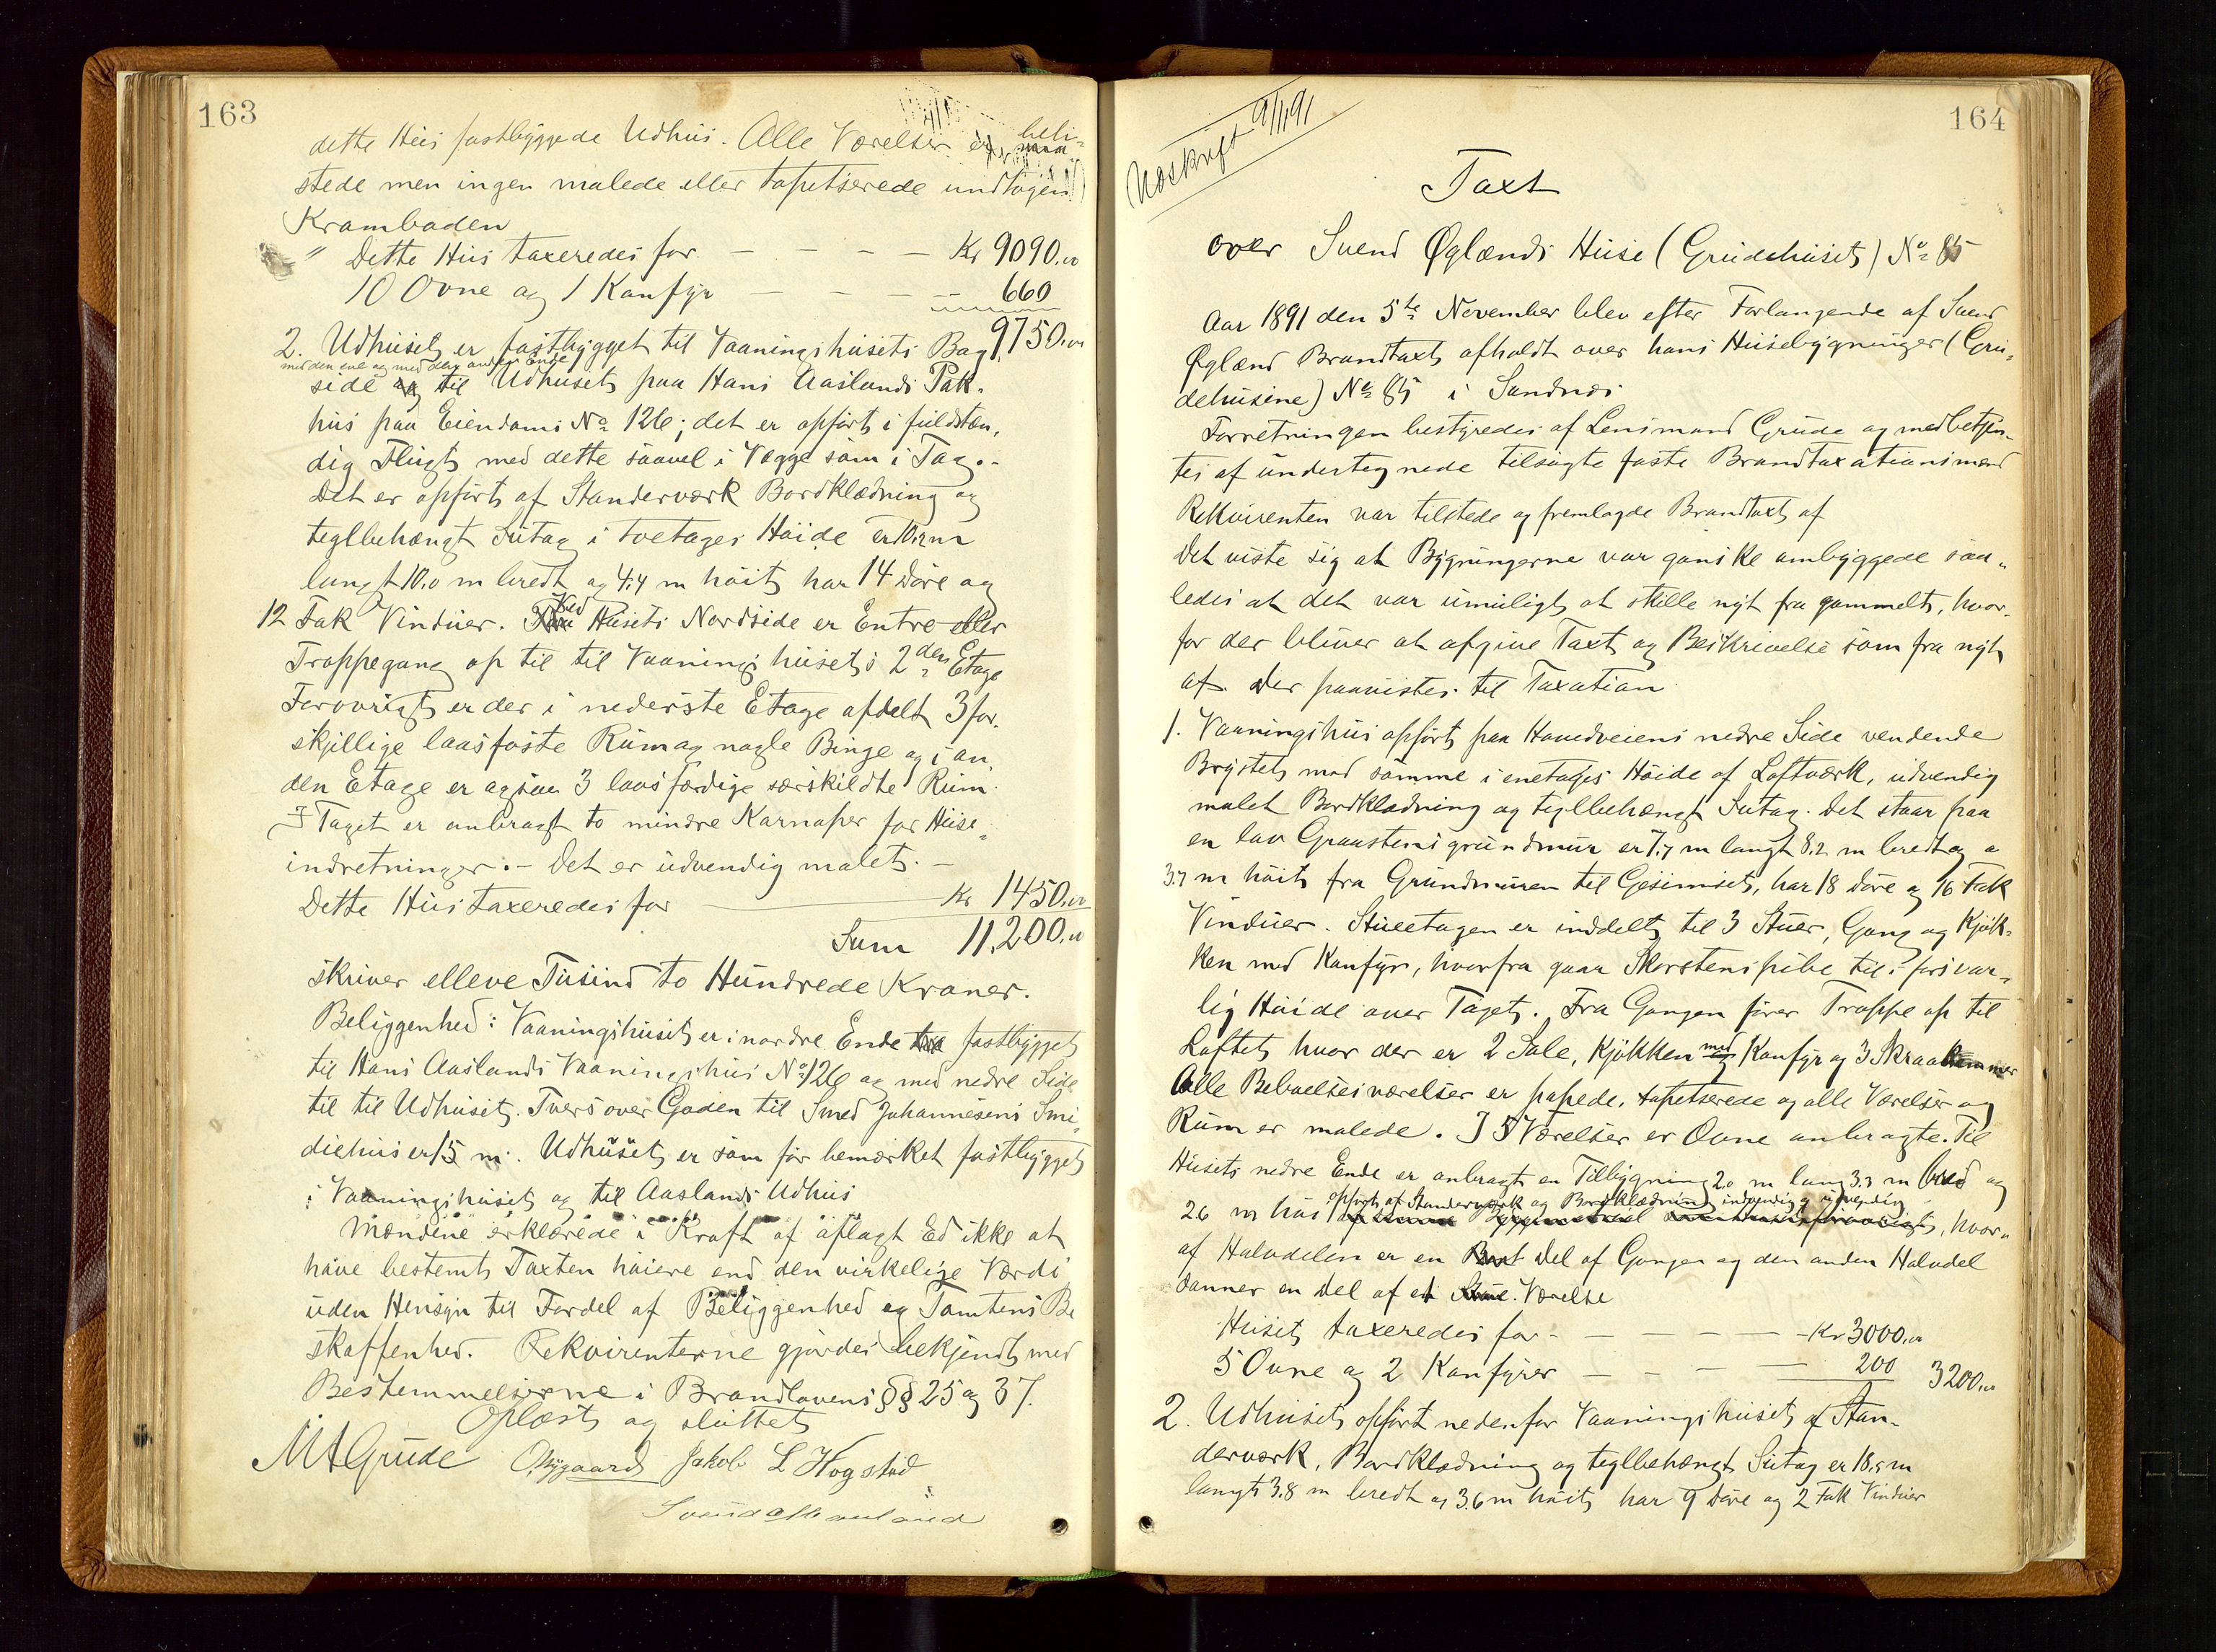 163
dette Hus fastbyggede Udhus. Alle Værelser er beli-
stede men ingen malede eller tapetserede undtagen
Kramboden
" Dette Hus taxeredes for — — — — Kr 9090.00
10 Ovne og 1 Komfyr — — — — 660
9750.00
2. Udhuset er fastbygget til Vaaningshusets Bag
med den ene og med den anden Ende
side og til Udhuset paa Hans Aaslands Pak-
hus paa Eiendoms No 126; det er opført i fuldstæn-
dig Flugt med dette saavel i Vægge som i Tag.-
Det er opført af Standerværk Bordklædning og
teglbehængt Sutag i toetages Høide er 10.2 m
langt 10.0 m bredt og 4.4 m høit har 14 Døre og
12 Fak Vinduer. Ved Husets Nordside er Entre eller
Trappegang op til til Vaaningshusets 2den Etage
Forøvrigt er der i nederste Etage afdelt 3 for-
skjellige laasfaste Rum og nogle Binge og i an-
den Etage er ogsaa 3 laasfærdige særskildte Rum.
I Taget er anbragt to mindre Karnaper for Heise-
indretninger.- Det er udvendig malet.-
Dette Hus taxeredes for — Kr 1450.00
Sum 11.200.00
skriver elleve Tusind to Hundrede Kroner.
Beliggenhed: Vaaningshuset er i nordre Ende fastbygget
til Hans Aaslands Vaaningshus No 126 og med nedre Side
til til Udhuset. Tvers over Gaden til Smed Johannesens Smi-
diehus er 15 m. Udhuset er som før bemærket fastbygget
i Vaaningshuset og til Aaslands Udhus
Mændene erklærede i Kraft af aflagt Ed ikke at
have bestemt Taxten høiere end den virkelige Værdi
uden Hensyn til Fordel af Beliggenhed og Tomtens Be
skaffenhed. Rekvirenterne gjordes bekjendt med
Bestemmelserne i Brandlovens §§ 25 og 37.
Oplæst og sluttet
M A Grude O. Nygaard Jakob L Hogstad
Svend
164
Udskrift 9/11 91
Taxt
over Svend Øglænds Huse (Grudehuset) No 85
Aar 1891 den 5te November blev efter Forlangende af Svend
Øglænd Brandtaxt afholdt over hans Husebygninger (Gru-
dehusene) No 85 i Sandnæs
Forretningen bestyredes af Lensmand Grude og medbetjen-
tes af undertegnede tilsagte faste Brandtaxationsmænd
Rekvirenten var tilstede og fremlagde Brandtaxt af
Det viste sig at Bygningerne var ganske ombyggede saa-
ledes at det var umuligt at skille nyt fra gammelt, hvor-
for der bliver at afgive Taxt og Beskrivelse som fra nyt
af. Der paavistes til Taxation
1. Vaaningshus opført paa Hovedveiens nedre Side vendende
Brystet mod samme i enetages Høide af Loftværk, udvendig
malet Bordklædning og teglbehængt Sutag. Det staar paa
en lav Graastensgrundmur er 7.7 m langt 8.2 m bredt og
3.7 m høit fra Grundmuren til Gesimset, har 18 Døre og 16 Fak
Vinduer. Stueetagen er inddelt til 3 Stuer, Gang og Kjøk-
ken med Komfyr, hvorfra gaar Skorstenspibe til forsvar-
lig Høide over Taget. Fra Gangen fører Trappe op til
Loftet hvor der er 2 Sale, Kjøkken med Komfyr og 3 Skraakammer
Alle Beboelsesværelser er papede, tapetserede og alle Værelser og
Rum er malede. I 5 Værelser er Ovne anbragte. Til
Husets nedre Ende er anbragt en Tilbygning 2.0 m lang 3.3 m bred og
opført af Standerværk og Bordklædning indvendig og udvendig
2.6 m høi, hvor-
af Halvdelen er en Del af Gangen og den anden Halvdel
danner en Del af et Værelse
Huset taxeredes for — — — — Kr 3000.00
5 Ovne og 2 Komfyrer — — — — 200 3200.00
2. Udhuset opført nedenfor Vaaningshuset af Stan-
derværk, Bordklædning og teglbehængt Sutag er 18.5 m
langt 3.8 m bredt og 3.6 m høit har 9 Døre og 2 Fak Vinduer